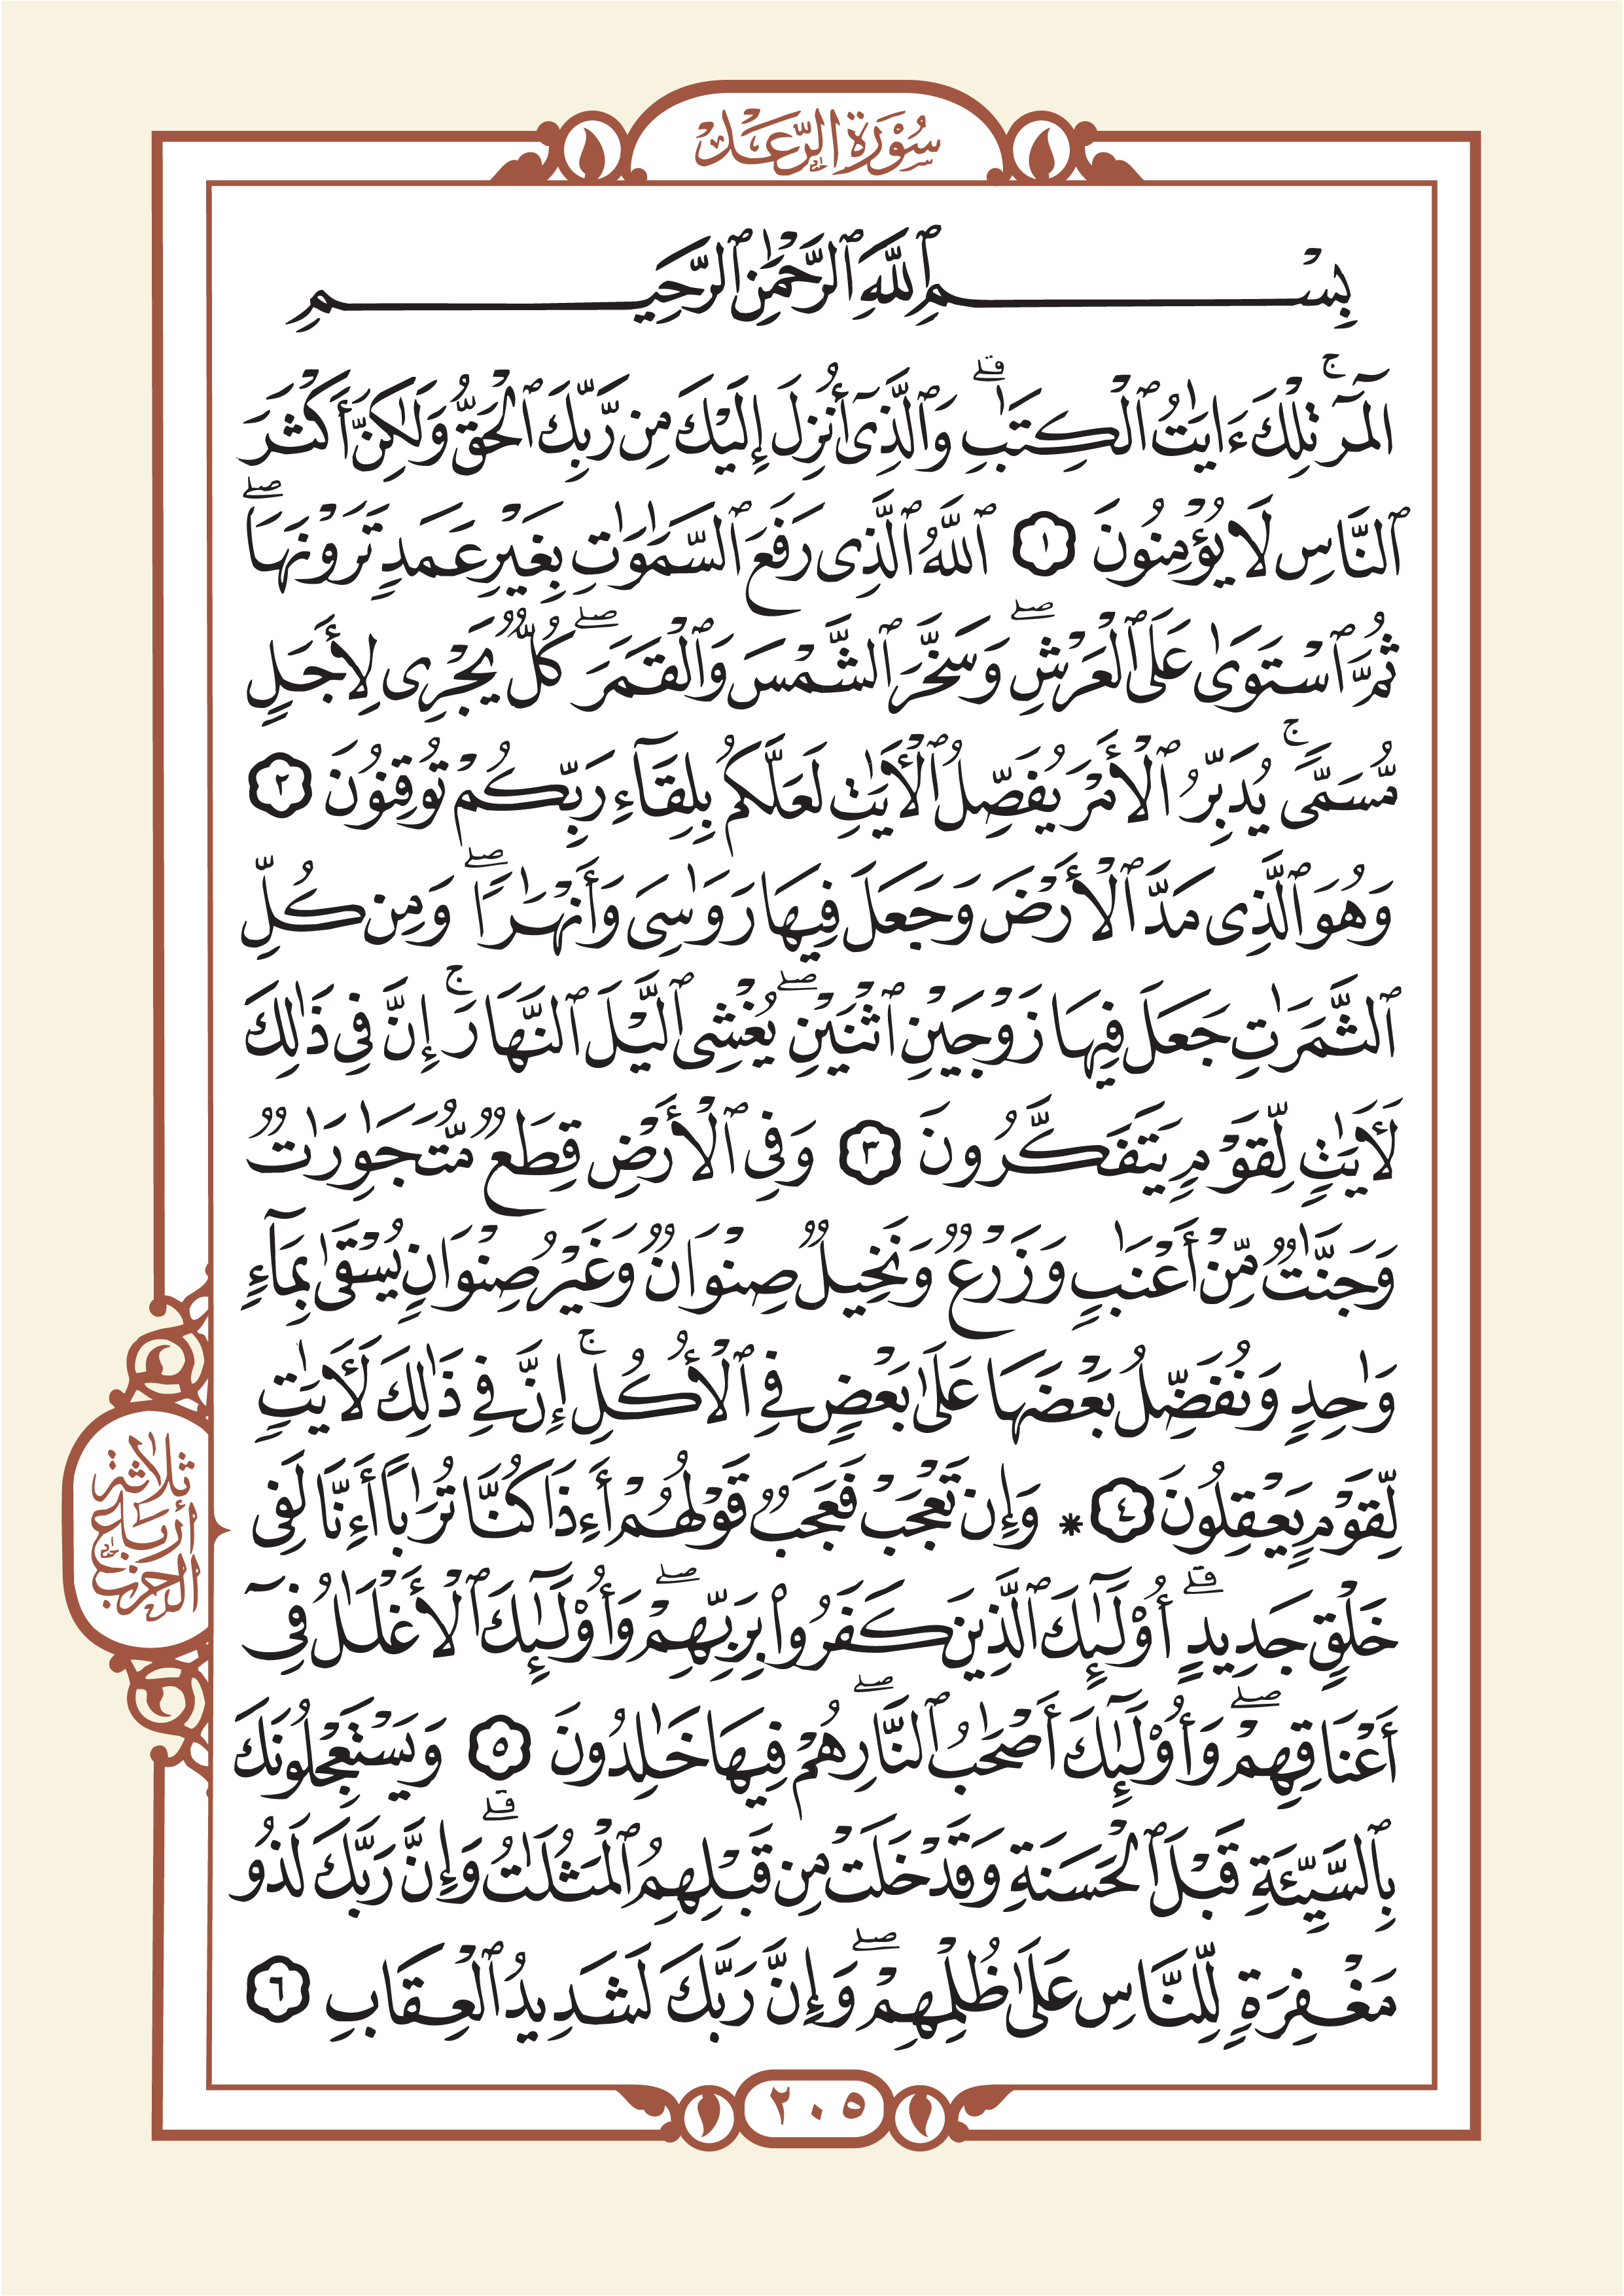 سُوْرَة الرَّعَد
بِسْمِ ٱللَّهِ ٱلرَّحْمَٰنِ ٱلرَّحِيمِ
الٓمٓرۚ تِلْكَ ءَايَٰتُ ٱلْكِتَٰبِۗ وَٱلَّذِىٓ أُنزِلَ إِلَيْكَ مِن رَّبِّكَ ٱلْحَقُّ وَلَٰكِنَّ أَكْثَرَ
ٱلنَّاسِ لَا يُؤْمِنُونَ ١ ٱللَّهُ ٱلَّذِى رَفَعَ ٱلسَّمَٰوَٰتِ بِغَيْرِ عَمَدٍ تَرَوْنَهَاۖ
ثُمَّ ٱسْتَوَىٰ عَلَى ٱلْعَرْشِۖ وَسَخَّرَ ٱلشَّمْسَ وَٱلْقَمَرَۖ كُلٌّ يَجْرِى لِأَجَلٍ
مُّسَمًّىۚ يُدَبِّرُ ٱلْأَمْرَ يُفَصِّلُ ٱلْأَيَٰتِ لَعَلَّكُم بِلِقَآءِ رَبِّكُمْ تُوقِنُونَ ٢
وَهُوَ ٱلَّذِى مَدَّ ٱلْأَرْضَ وَجَعَلَ فِيهَا رَوَٰسِىَ وَأَنْهَٰرًاۖ وَمِن كُلِّ
ٱلثَّمَرَٰتِ جَعَلَ فِيهَا زَوْجَيْنِ ٱثْنَيْنِۖ يُغْشِى ٱلَّيْلَ ٱلنَّهَارَۚ إِنَّ فِى ذَٰلِكَ
لَأَيَٰتٍ لِّقَوْمٍ يَتَفَكَّرُونَ ٣ وَفِى ٱلْأَرْضِ قِطَعٌ مُّتَجَٰوِرَٰتٌ
وَجَنَّٰتٌ مِّنْ أَعْنَٰبٍ وَزَرْعٌ وَنَخِيلٌ صِنْوَانٌ وَغَيْرُ صِنْوَانٍ يُسْقَىٰ بِمَآءٍ
وَٰحِدٍ وَنُفَضِّلُ بَعْضَهَا عَلَىٰ بَعْضٍ فِى ٱلْأُكُلِۚ إِنَّ فِى ذَٰلِكَ لَأَيَٰتٍ
لِّقَوْمٍ يَعْقِلُونَ ٤ * وَإِن تَعْجَبْ فَعَجَبٌ قَوْلُهُمْ أَءِذَا كُنَّا تُرَٰبًا أَءِنَّا لَفِى
خَلْقٍ جَدِيدٍۗ أُوْلَٰٓئِكَ ٱلَّذِينَ كَفَرُوا۟ بِرَبِّهِمْۖ وَأُوْلَٰٓئِكَ ٱلْأَغْلَٰلُ فِىٓ
أَعْنَاقِهِمْۖ وَأُوْلَٰٓئِكَ أَصْحَٰبُ ٱلنَّارِۖ هُمْ فِيهَا خَٰلِدُونَ ٥ وَيَسْتَعْجِلُونَكَ
بِٱلسَّيِّئَةِ قَبْلَ ٱلْحَسَنَةِ وَقَدْ خَلَتْ مِن قَبْلِهِمُ ٱلْمَثُلَٰتُۗ وَإِنَّ رَبَّكَ لَذُو
مَغْفِرَةٍ لِّلنَّاسِ عَلَىٰ ظُلْمِهِمْۖ وَإِنَّ رَبَّكَ لَشَدِيدُ ٱلْعِقَابِ ٦
ثلاثة
أرباع
الحزب
٢٠٥